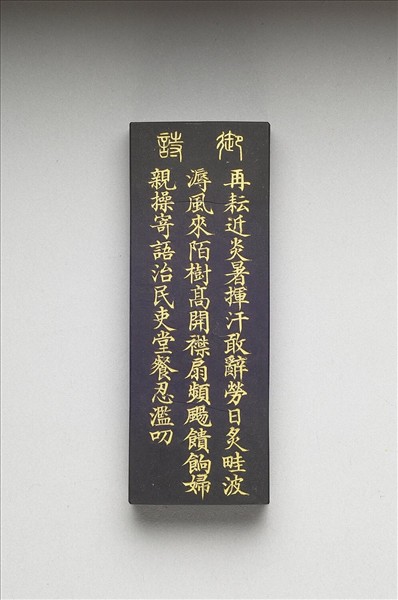 御詩
再耘近炎暑揮汗敢辭勞日炙畦波
溽風來陌樹髙開襟扇頻颺饋餉婦
親操寄語治民吏堂餐忍濫叨